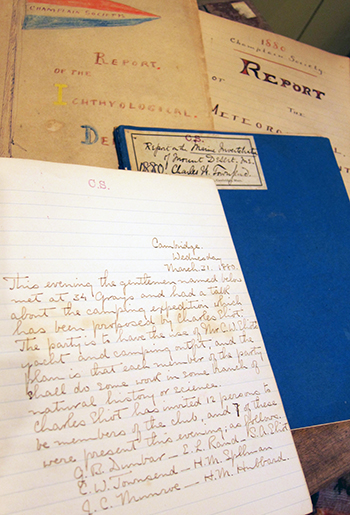 CHAMPLAIN SOCIETY
REPORT
OF THE
ICHTHYOLOGICAL
1880
Champlain Society
REPORT
OF THE
C.S.
Report on the Marine Invertebrata
of Mount Desert, Me.
1880 Charles H. Townsend
C.S.
Cambridge.
Wednesday
March 31, 1880.
This evening the gentlemen named below
met at 34 Grays and had a talk
about the camping expedition which
has been proposed by Charles Eliot.
The party is to have the use of Mr C. W. Eliot's
yacht and camping outfit, and the
plan is that each member of the party
shall do some work in some branch of
natural history or science.
Charles Eliot has invited 12 persons to
be members of the club, and 7 of these
were present this evening, as follows.
Dunbar — E. L. Rand — S. A. Eliot
E. W. Townsend — H. M. Spelman
J. C. Munroe — H. M. Hubbard.